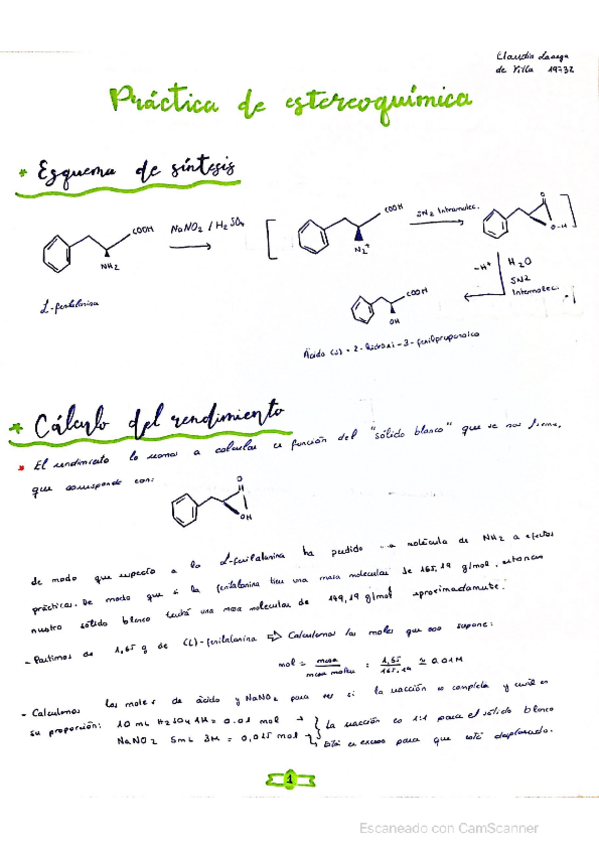 Claudia
de Villa 19732
Práctica de estereoquímica
* Esquema de síntesis
COOH
NH2
NaNO2 / H2SO4
COOH
N2+
SN2 Intramolec.
O
O-H
L-fenilalanina
-H+
H2O
SN2
Intermolec.
COOH
OH
Ácido (S)-2-hidroxi-3-fenilpropanoico
* Cálculo del rendimiento
* El rendimiento lo vamos a calcular en función del "sólido blanco" que se nos forma,
que corresponde con:
OH
de modo que respecto a la L-fenilalanina ha perdido molécula de NH2 a efectos
prácticos. De modo que si la fenilalanina tiene una masa molecular de 165,19 g/mol, entonces
nuestro sólido blanco tendrá una masa molecular de 149,19 g/mol aproximadamente.
- Partimos de 1,65 g de (L)-fenilalanina ⇒ Calculamos los moles que eso supone:
mol = masa / masa molec = 1,65 / 165,19 ≈ 0.01M
- Calculamos los moles de ácido y NaNO2 para ver si la reacción es completa y cuál es
su proporción: 10 mL H2SO4 1M = 0.01 mol → } La reacción es 1:1 para el sólido blanco
NaNO2 5mL 3M = 0,015 mol → } Está en exceso para que esté desplazado.
1
Escaneado con CamScanner